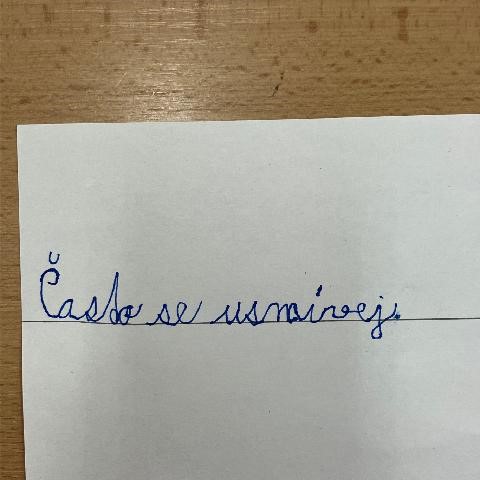 Často se usmívej.